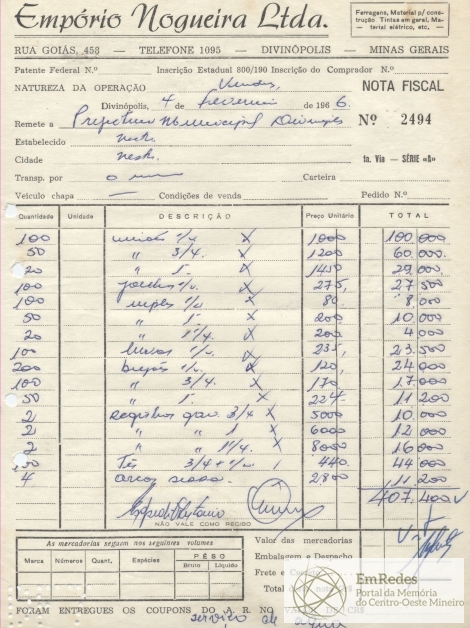 Empório Nogueira Ltda.
Ferragens, Material p/ construção. Tintas em geral, Material elétrico, etc.
RUA GOIÁS, 458 — TELEFONE 1095 — DIVINÓPOLIS — MINAS GERAIS
Patente Federal N.º Inscrição Estadual 800/190 Inscrição do Comprador N.º
NATUREZA DA OPERAÇÃO Vendas NOTA FISCAL
Divinópolis, 4 de Fevereiro de 1966.
Remete a Prefeitura Municipal Divinópolis Nº 2494
Estabelecido nesta
Cidade nesta. ta. Via — SÉRIE «A»
Transp. por o mesmo Carteira
Veículo chapa — Condições de venda Pedido N.º
Quantidade Unidade DESCRIÇÃO Preço Unitário TOTAL
100 X 1000 100.000
50 " 3/4. X 1200 60.000.
20 " 1. X 1450 29.000.
100 X 275, 27.500
100 X 80. 8.000
50 " 1. X 200 10.000
20 " X 200. 4 000
100 X 235, 23.500
200 X 120, 24.000
100 " 3/4. X 170 17.000
50 " 1. X 224- 11 200
2 registros gav. 3/4 X 5000 10.000
2 " " 1 X 6000 12 000
2 " " X 8000 16 000
100 Tês 440. 44 000
4 arcos serra. 2800 11.200
407.400
NÃO VALE COMO RECIBO
As mercadorias seguem nos seguintes volumes
Marca Números Quant. Espécies PÊSO
Bruto Líquido
Valor das mercadorias
Embalagem e Despacho
Frete e
Total
FORAM ENTREGUES OS COUPONS DO A. R. NO VALOR DE CR$
serviço de água
EmRedes
Portal da Memória
do Centro-Oeste Mineiro